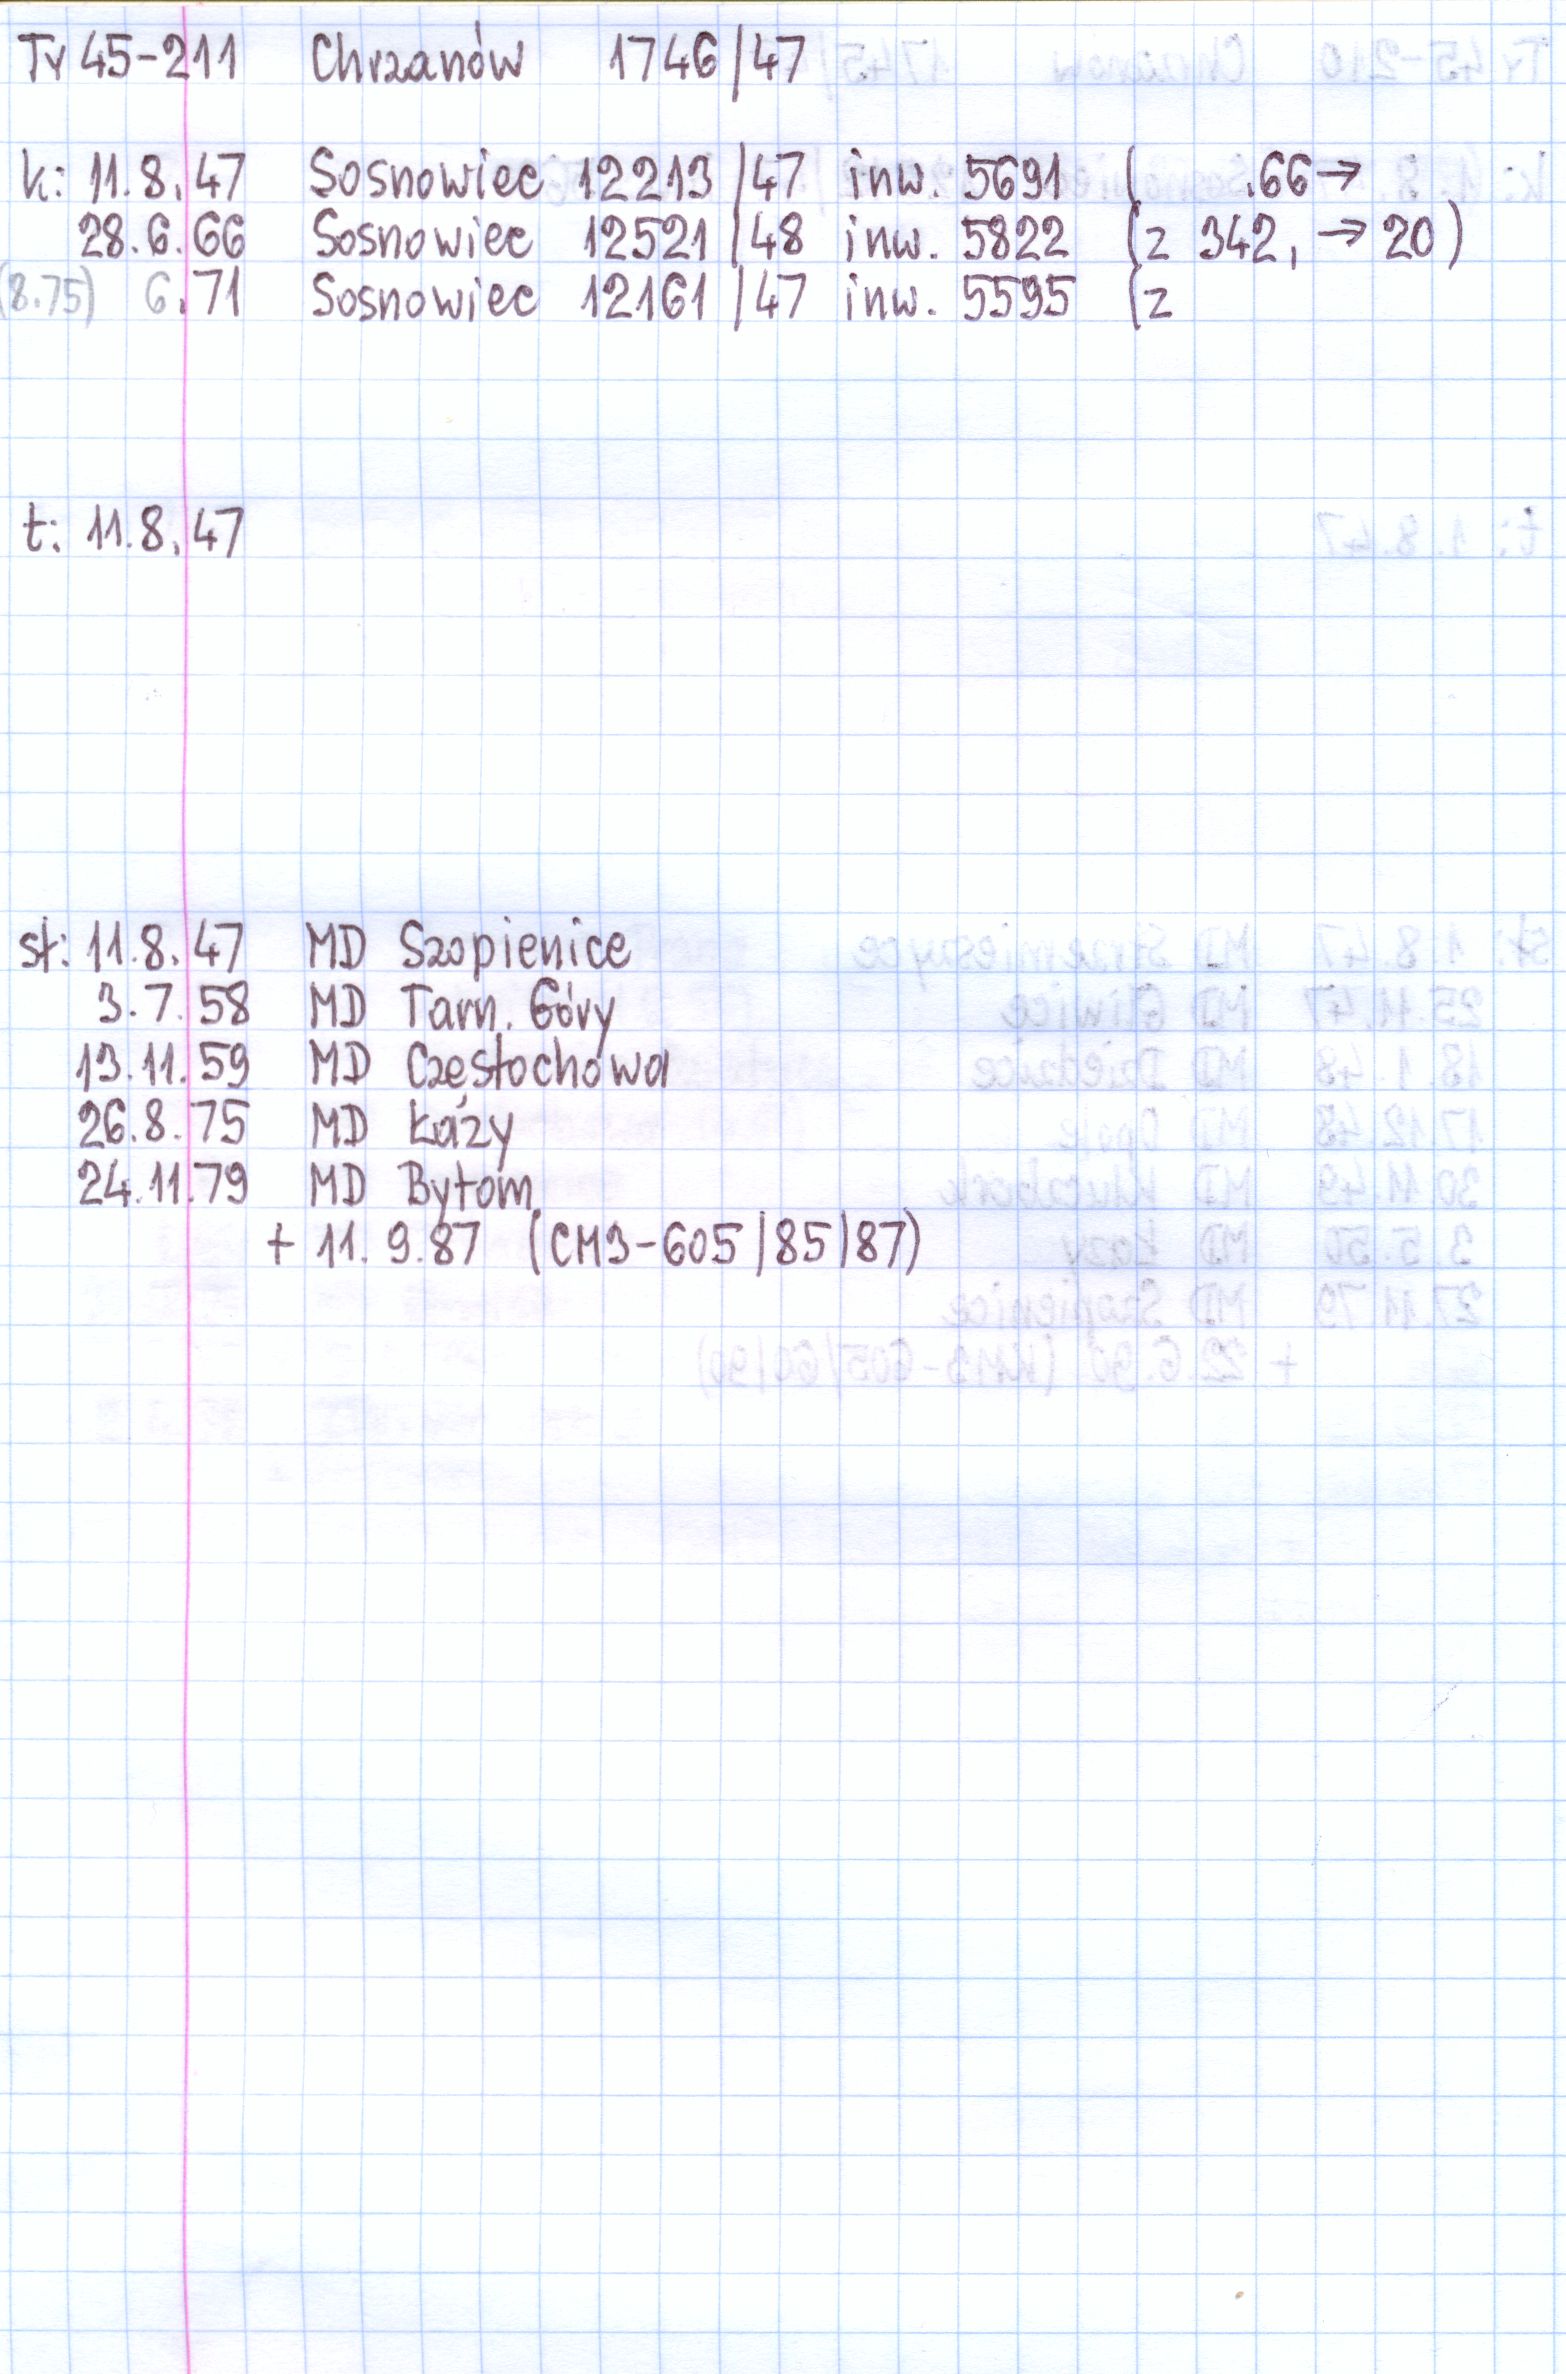 Ty 45-211 Chrzanów 1746/47
k: 11.8.47 Sosnowiec 12213/47 inw. 5691 ( .66→
28.6.66 Sosnowiec 12521/48 inw. 5822 (z 342, → 20)
(8.75) 6.71 Sosnowiec 12161/47 inw. 5595 (z
t: 11.8.47
st: 11.8.47 MD Szopienice
3.7.58 MD Tarn. Góry
13.11.59 MD Częstochowa
26.8.75 MD Łazy
24.11.79 MD Bytom
+ 11.9.87 (CM3-605/85/87)